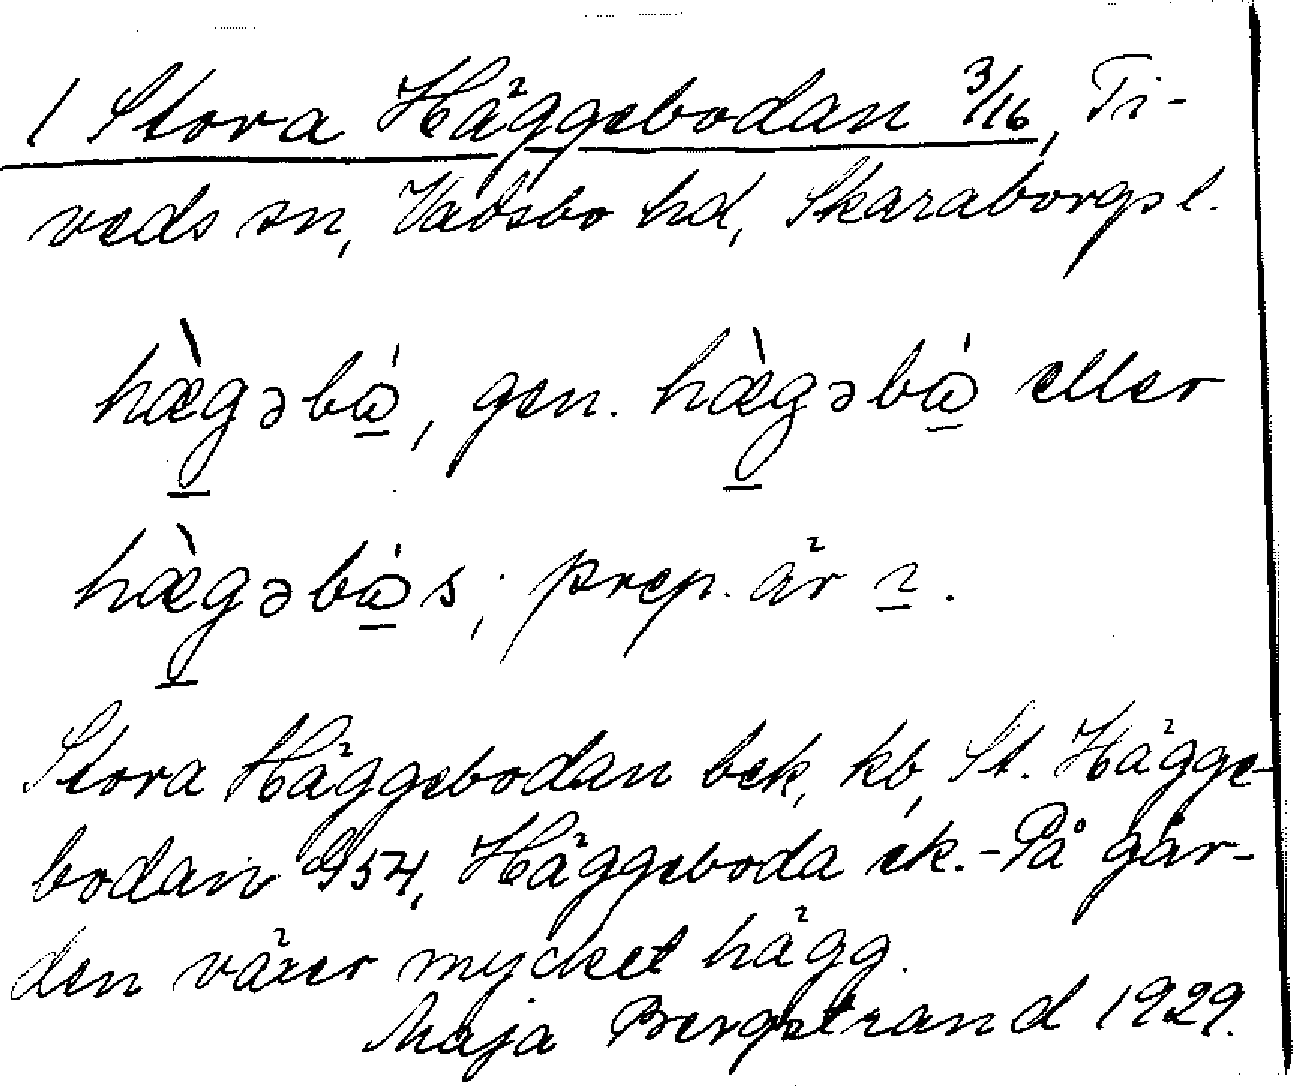 1 Stora Häggebodan 3/16, Ti-
veds sn, Vadsbo hd, Skaraborgs l.
hæ̀gəbá, gen. hæ̀gəbá eller
hæ̀gəbás; prep. är ɿ.
Stora Häggebodan bek, kb, St. Hägge-
bodan G54, Häggeboda ek. - På går-
den växer mycket hägg.
Maja Bergstrand 1929.